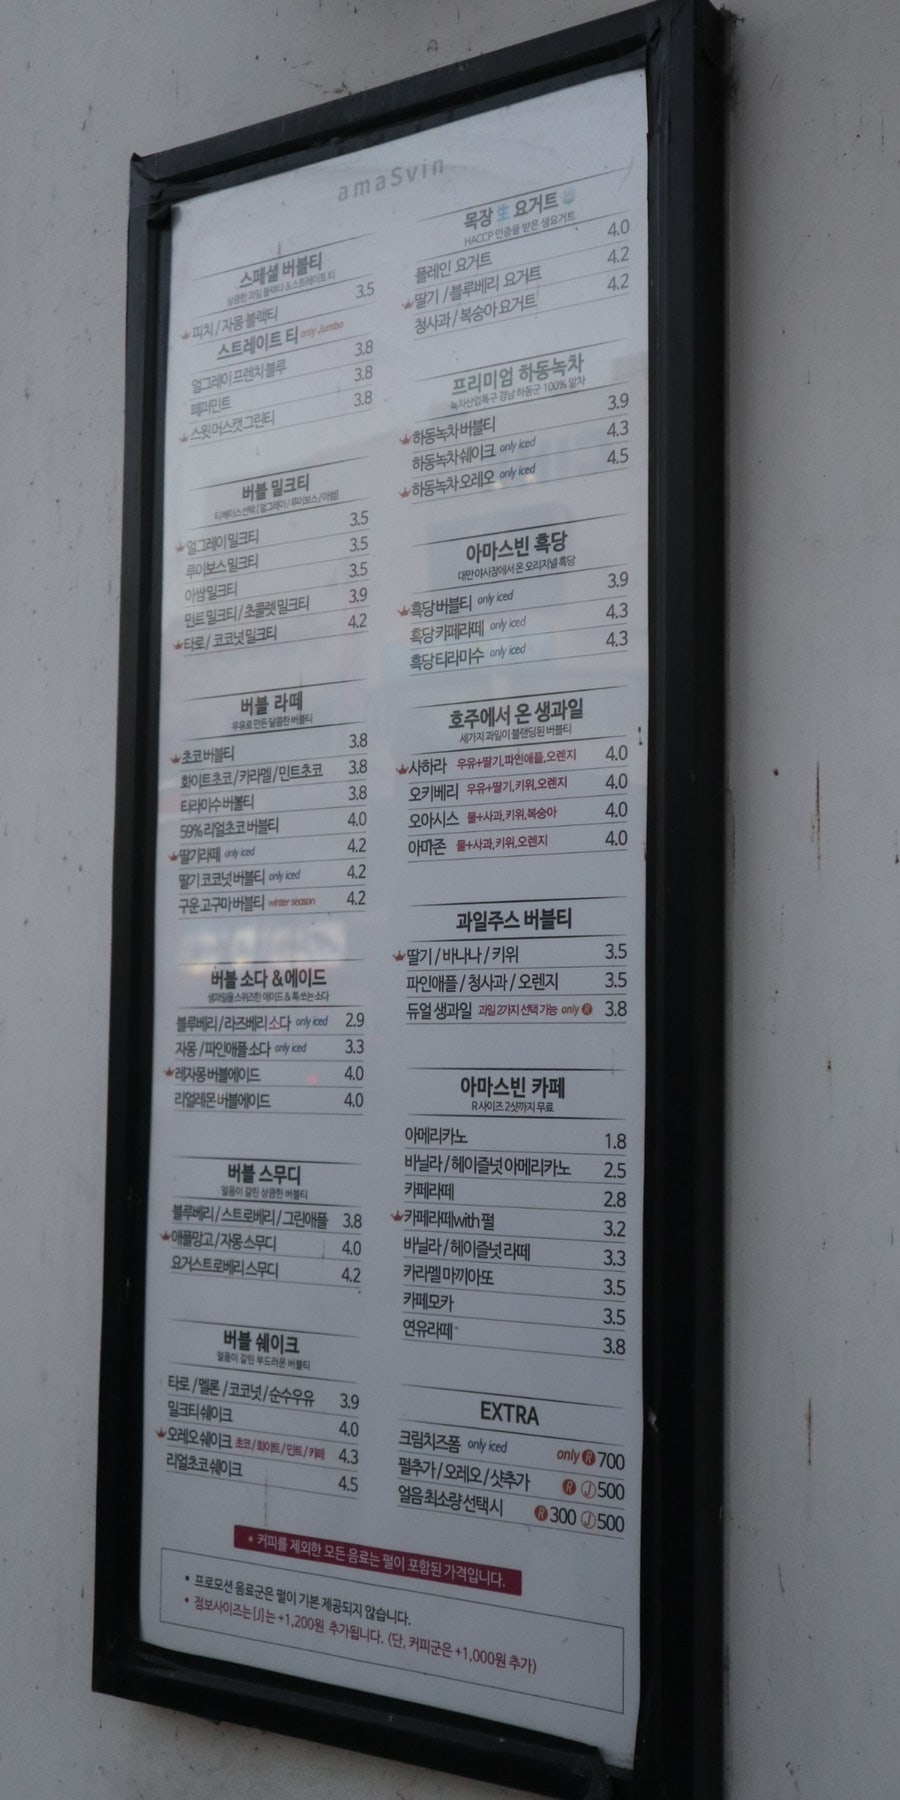 amaSvin
스페셜 버블티
상큼한 과일 블랙티 & 스트레이트 티
피치 / 자몽 블랙티 3.5
스트레이트 티 only Jumbo
얼그레이 프렌치블루 3.8
페퍼민트 3.8
스윗 머스캣 그린티 3.8
버블 밀크티
티 베이스 선택 [얼그레이 / 루이보스 / 아쌈]
얼그레이 밀크티 3.5
루이보스 밀크티 3.5
아쌈 밀크티 3.5
민트 밀크티 / 초콜렛 밀크티 3.9
타로 / 코코넛 밀크티 4.2
버블 라떼
우유로 만든 달콤한 버블티
초코 버블티 3.8
화이트초코 / 카라멜 / 민트초코 3.8
티라미수 버블티 3.8
59% 리얼초코 버블티 4.0
딸기라떼 only iced 4.2
딸기 코코넛 버블티 only iced 4.2
구운 고구마 버블티 winter season 4.2
버블 소다 & 에이드
생과일을 스퀴즈한 에이드 & 톡 쏘는 소다
블루베리 / 라즈베리 소다 only iced 2.9
자몽 / 파인애플 소다 only iced 3.3
레자몽 버블에이드 4.0
리얼레몬 버블에이드 4.0
버블 스무디
얼음이 갈린 상큼한 버블티
블루베리 / 스트로베리 / 그린애플 3.8
애플망고 / 자몽 스무디 4.0
요거스트로베리 스무디 4.2
버블 쉐이크
얼음이 갈린 부드러운 버블티
타로 / 멜론 / 코코넛 / 순수우유 3.9
밀크티 쉐이크 4.0
오레오 쉐이크 초코 / 화이트 / 민트 / 카페 4.3
리얼초코 쉐이크 4.5
목장 生 요거트
HACCP 인증을 받은 생요거트
플레인 요거트 4.0
딸기 / 블루베리 요거트 4.2
청사과 / 복숭아 요거트 4.2
프리미엄 하동녹차
녹차산업특구 경남 하동군 100% 말차
하동녹차 버블티 3.9
하동녹차 쉐이크 only iced 4.3
하동녹차 오레오 only iced 4.5
아마스빈 흑당
대만 야시장에서 온 오리지널 흑당
흑당 버블티 only iced 3.9
흑당 카페라떼 only iced 4.3
흑당 티라미수 only iced 4.3
호주에서 온 생과일
세가지 과일이 블랜딩된 버블티
사하라 우유+딸기,파인애플,오렌지 4.0
오키베리 우유+딸기,키위,오렌지 4.0
오아시스 물+사과,키위,복숭아 4.0
아마존 물+사과,키위,오렌지 4.0
과일주스 버블티
딸기 / 바나나 / 키위 3.5
파인애플 / 청사과 / 오렌지 3.5
듀얼 생과일 과일 2가지 선택 가능 only R 3.8
아마스빈 카페
R 사이즈 2샷까지 무료
아메리카노 1.8
바닐라 / 헤이즐넛 아메리카노 2.5
카페라떼 2.8
카페라떼 with 펄 3.2
바닐라 / 헤이즐넛 라떼 3.3
카라멜 마끼아또 3.5
카페모카 3.5
연유라떼 3.8
EXTRA
크림치즈폼 only iced only R 700
펄추가 / 오레오 / 샷추가 R J 500
얼음 최소량 선택시 R 300 J 500
* 커피를 제외한 모든 음료는 펄이 포함된 가격입니다.
• 프로모션 음료군은 펄이 기본 제공되지 않습니다.
• 점보사이즈는 [J]는 +1,200원 추가됩니다. (단, 커피군은 +1,000원 추가)